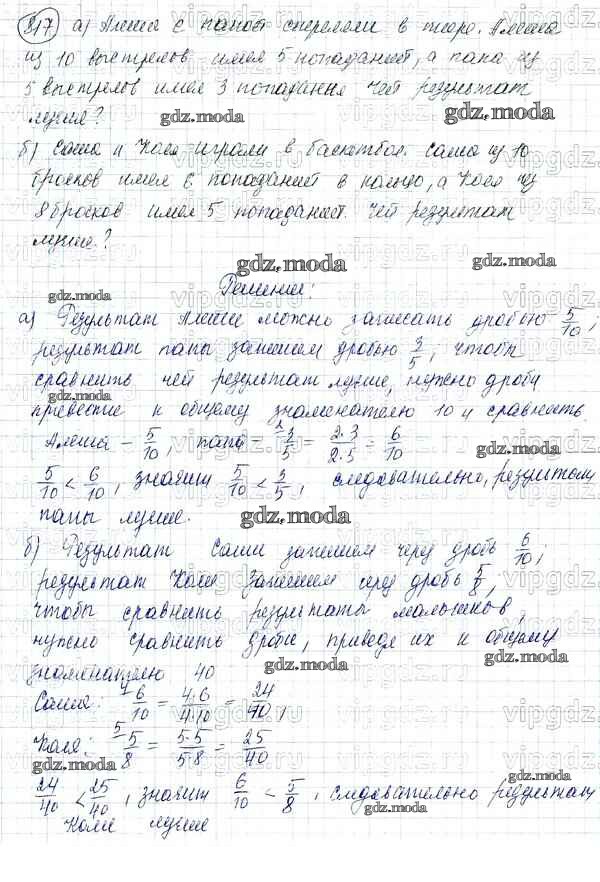 817 а) Алеша с папой стреляли в тире. Алеша
из 10 выстрелов имел 5 попаданий, а папа из
5 выстрелов имел 3 попадания. Чей результат
лучше?
б) Саша и Коля играли в баскетбол. Саша из 10
бросков имел 6 попаданий в кольцо, а Коля из
8 бросков имел 5 попаданий. Чей результат
лучше?
gdz.moda
Решение:
а) Результат Алеши можно записать дробью 5/10;
результат папы запишем дробью 3/5; чтобы
сравнить чей результат лучше, нужно дроби
привести к общему знаменателю 10 и сравнить
Алеша – 5/10, папа = 3/5 = 2·3/2·5 = 6/10
5/10 < 6/10, значит 5/10 < 3/5, следовательно, результат
папы лучше.
б) Результат Саши запишем через дробь 6/10;
результат Коли запишем через дробь 5/8;
чтобы сравнить результаты мальчиков,
нужно сравнить дроби, приведя их к общему
знаменателю 40
Саша: 4 6/10 = 4·6/4·10 = 24/40,
Коля: 5 5/8 = 5·5/5·8 = 25/40
24/40 < 25/40, значит 6/10 < 5/8, следовательно результат
Коли лучше